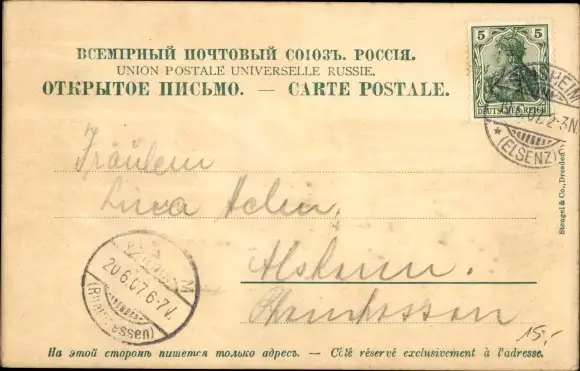 ВСЕМІРНЫЙ ПОЧТОВЫЙ СОЮЗЪ. РОССІЯ.
UNION POSTALE UNIVERSELLE RUSSIE.
ОТКРЫТОЕ ПИСЬМО. — CARTE POSTALE.
5 5
DEUTSCHES REICH
SINSHEIM
2-3N
* (ELSENZ)
Stengel & Co., Dresden
Fräulein
Alsheim.
Rheinhessen
M
20.6.07.6-7V.
(Rheinhessen)
15.-
На этой сторонѣ пишется только адресъ. — Côté réservé exclusivement à l'adresse.